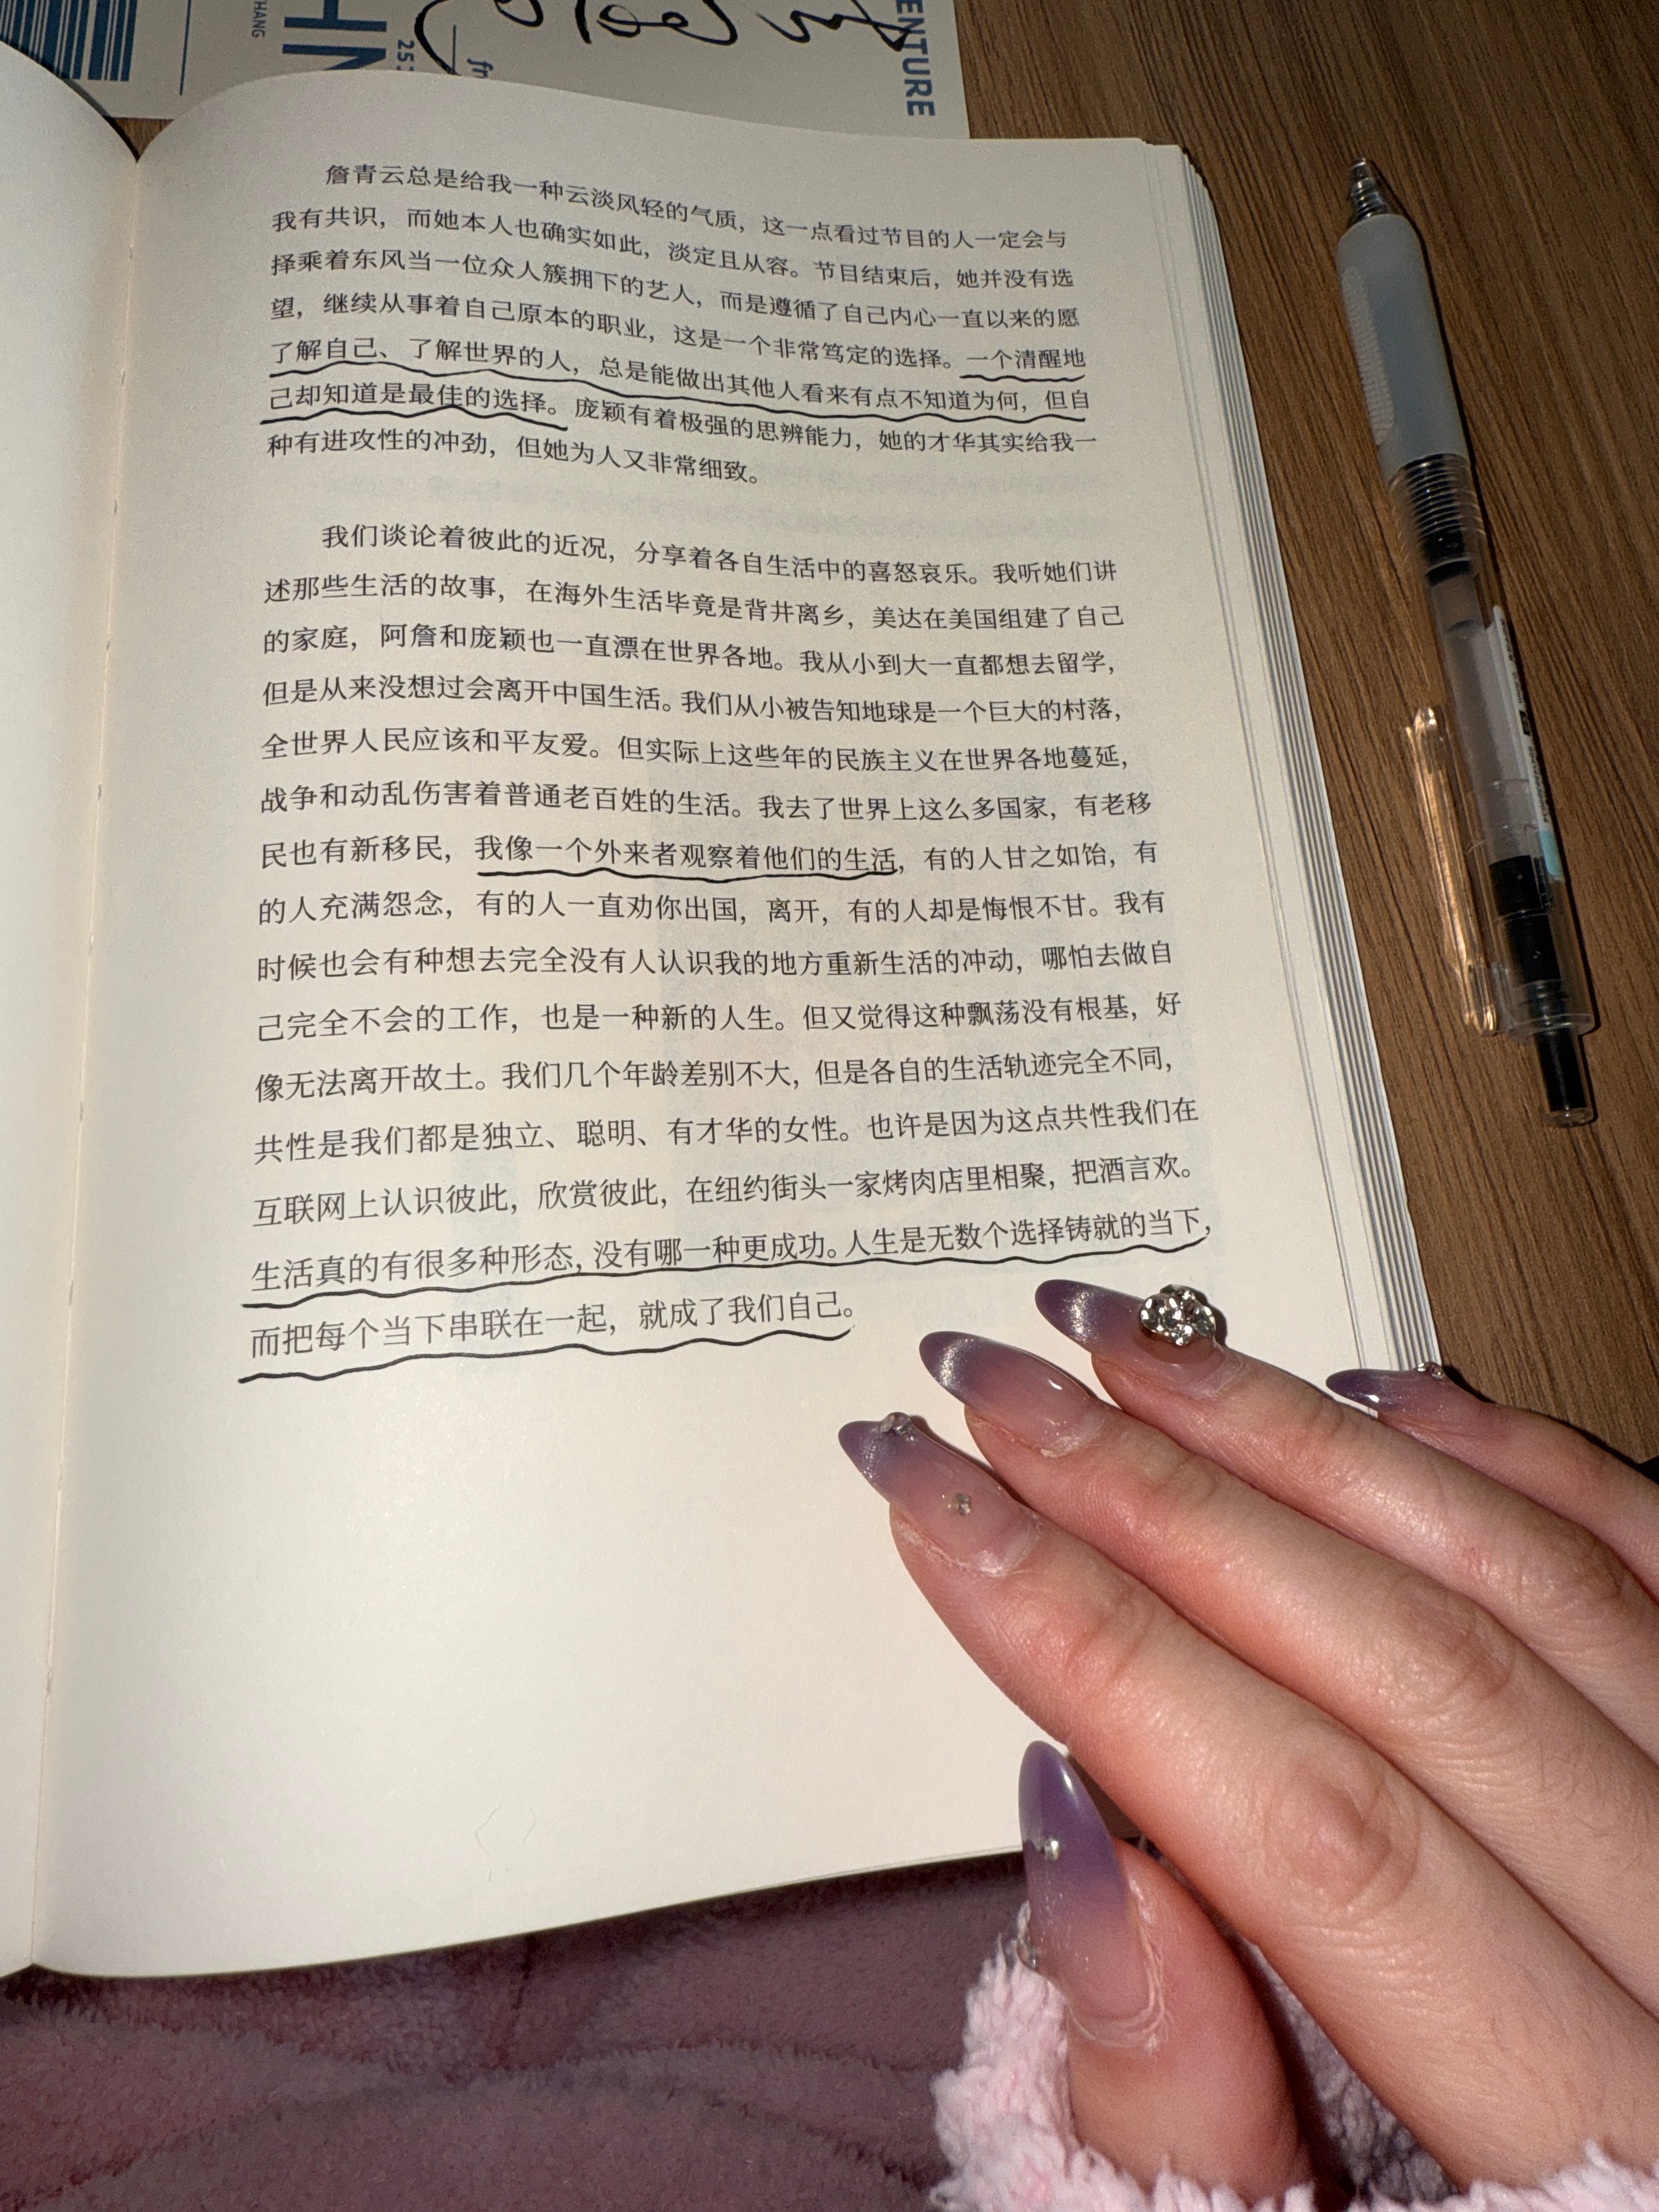 HANG
25
fr
ENTURE
詹青云总是给我一种云淡风轻的气质，这一点看过节目的人一定会与
我有共识，而她本人也确实如此，淡定且从容。节目结束后，她并没有选
择乘着东风当一位众人簇拥下的艺人，而是遵循了自己内心一直以来的愿
望，继续从事着自己原本的职业，这是一个非常笃定的选择。一个清醒地
了解自己、了解世界的人，总是能做出其他人看来有点不知道为何，但自
己却知道是最佳的选择。庞颖有着极强的思辨能力，她的才华其实给我一
种有进攻性的冲劲，但她为人又非常细致。
我们谈论着彼此的近况，分享着各自生活中的喜怒哀乐。我听她们讲
述那些生活的故事，在海外生活毕竟是背井离乡，美达在美国组建了自己
的家庭，阿詹和庞颖也一直漂在世界各地。我从小到大一直都想去留学，
但是从来没想过会离开中国生活。我们从小被告知地球是一个巨大的村落，
全世界人民应该和平友爱。但实际上这些年的民族主义在世界各地蔓延，
战争和动乱伤害着普通老百姓的生活。我去了世界上这么多国家，有老移
民也有新移民，我像一个外来者观察着他们的生活，有的人甘之如饴，有
的人充满怨念，有的人一直劝你出国，离开，有的人却是悔恨不甘。我有
时候也会有种想去完全没有人认识我的地方重新生活的冲动，哪怕去做自
己完全不会的工作，也是一种新的人生。但又觉得这种飘荡没有根基，好
像无法离开故土。我们几个年龄差别不大，但是各自的生活轨迹完全不同，
共性是我们都是独立、聪明、有才华的女性。也许是因为这点共性我们在
互联网上认识彼此，欣赏彼此，在纽约街头一家烤肉店里相聚，把酒言欢。
生活真的有很多种形态，没有哪一种更成功。人生是无数个选择铸就的当下，
而把每个当下串联在一起，就成了我们自己。